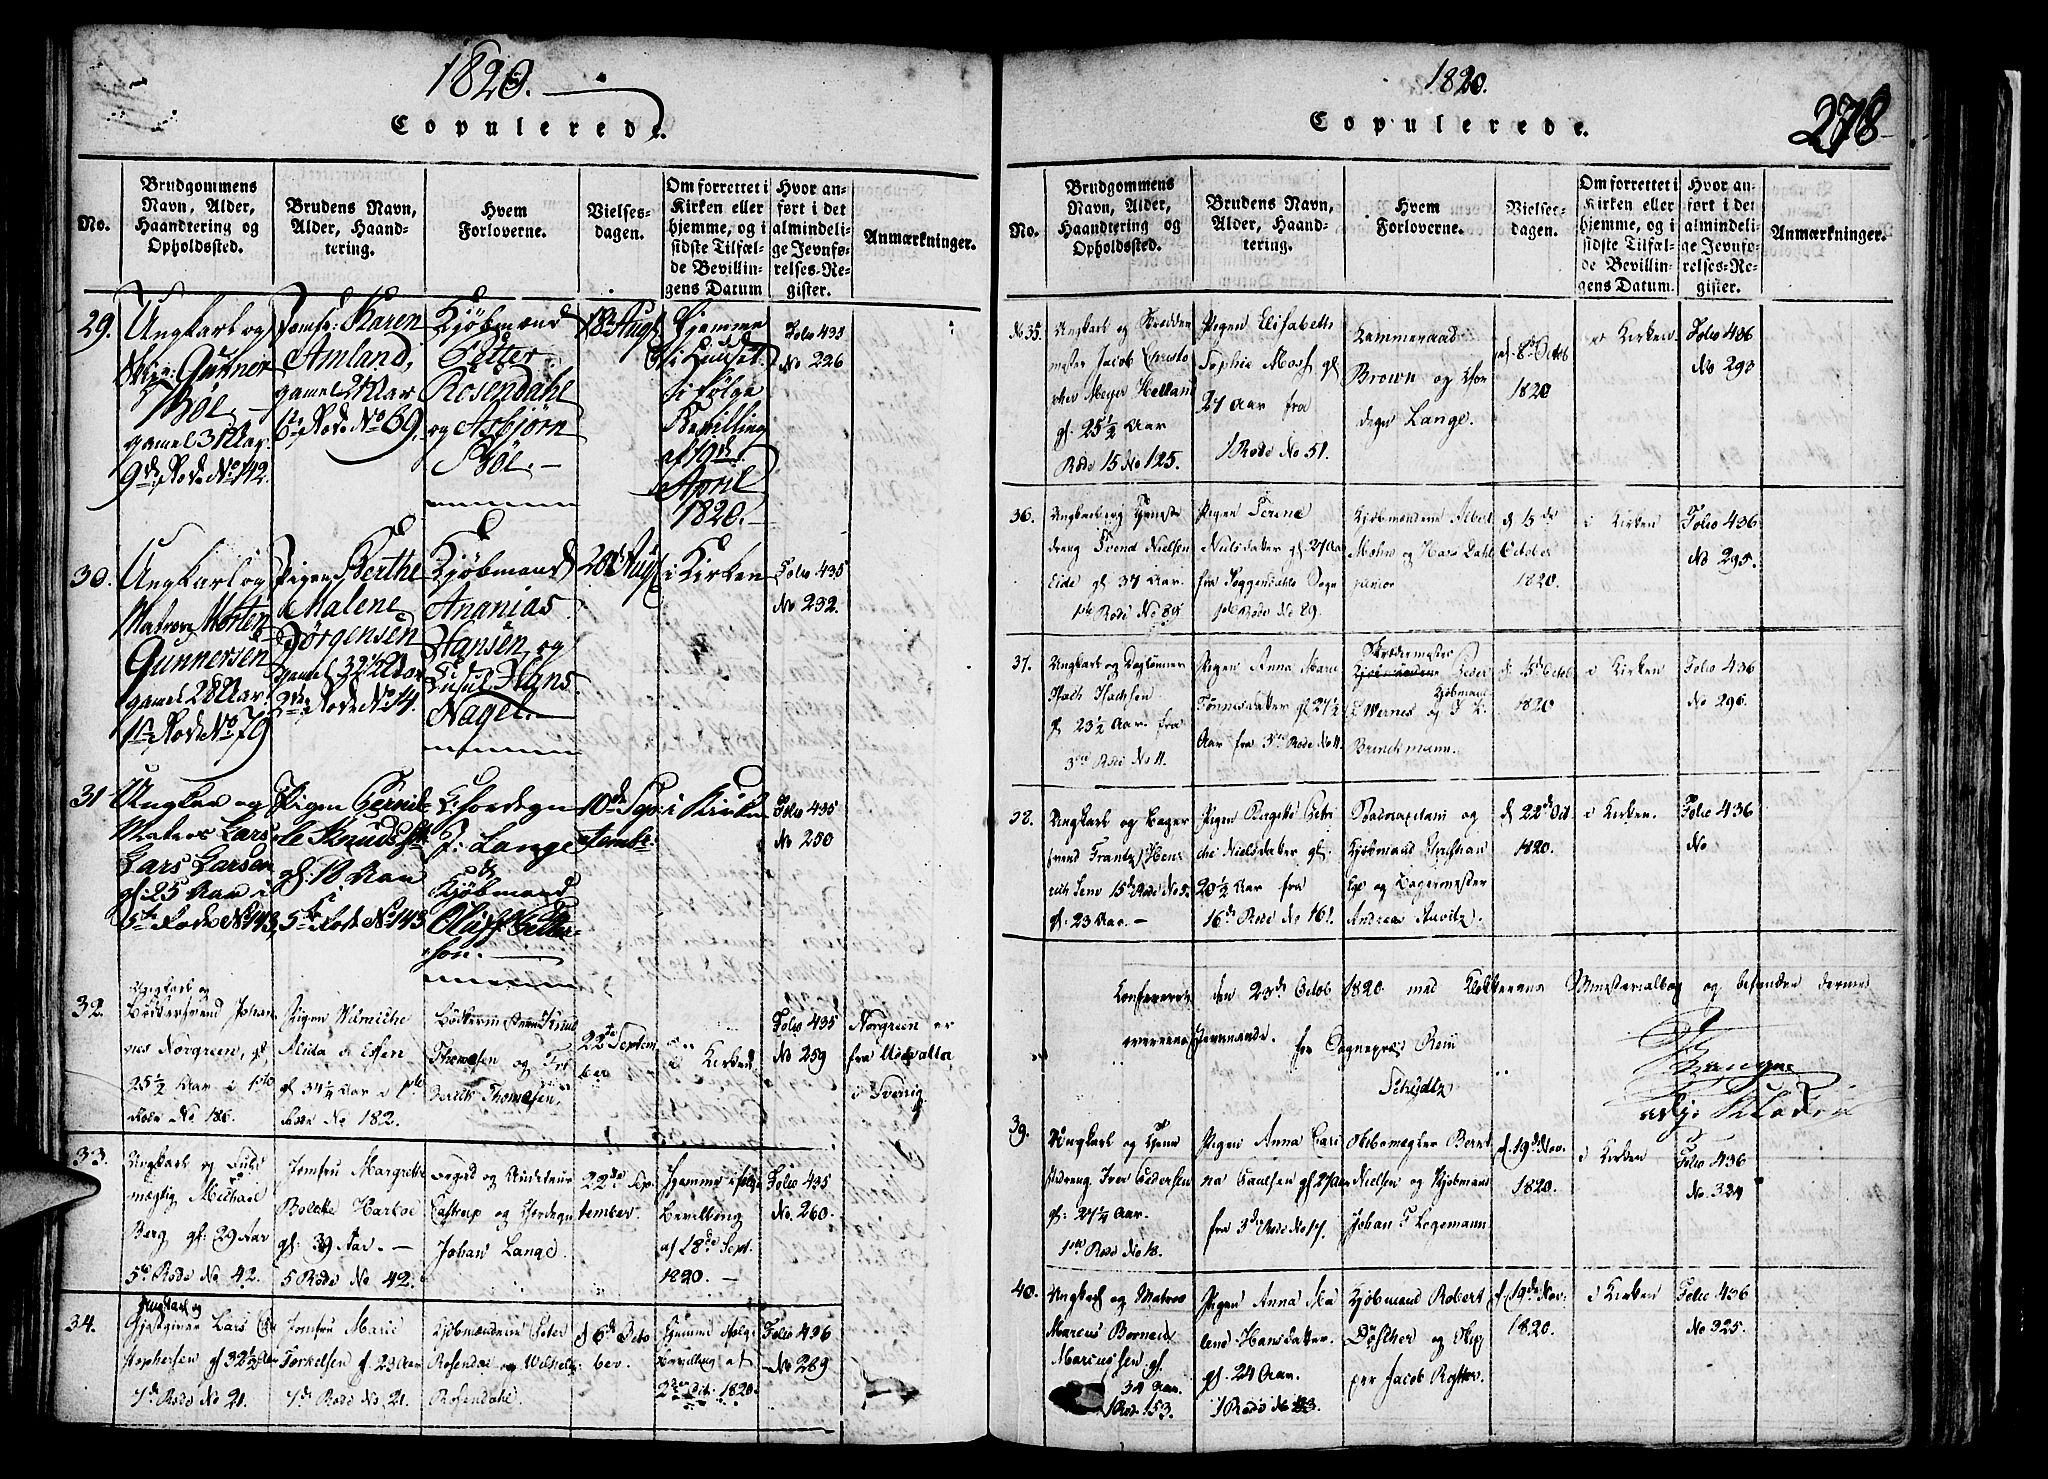 1820.
Copulerede.
No.
Brudgommens
Navn, Alder,
Haandtering og
Opholdssted.
Brudens Navn,
Alder, Haand-
tering.
Hvem
Forloverne.
Vielses-
dagen.
Om forrettet i
Kirken eller
hjemme, og i
sidste Tilfæl-
de Bevillin-
gens Datum
Hvor an-
ført i det
almindeli-
ge Jevnfø-
relses-Re-
gister.
Anmærkninger.
29.
Ungkarl og
Gunner
Bøe.
gamel 31 Aar.
9de Rode No 142.
Jomfr: Karen
Amland,
gamel 21 Aar
6te Rode No 69.
Kjøbmænd
Petter
Rosendahl
og Asbjørn
Bøe.
18de Aug
Hjemme
i Huuset
i følge
Bevilling
af 19de
April
1820.
Folio 435
No 226
30.
Ungkarl og
Matros Morten
Gunnersen
gamel 28 Aar.
1ste Rode No 79
Pigen Berthe
Malene
Jørgensen
gamel 32½ Aar
Rode No 14.
Kjøbmænd
Ananias
Hansen og
Hans
Nagel.
20de Aug
i Kirken
Folio 435
No 232.
31
Ungkar og
Matros Lars
Lars Larsen
gl: 25 Aar i
5te Rode No 143,
Pigen Pernil-
le Knudsdt
gl: 18 Aar
5te Rode No 143
Chordegn
J: Lange
Kjøbmand
Oluff Petter-
son.
10de Sep-
tembr.
i Kirken
Folio 435
No 250
32.
Ungkarl og
Bødkersvend Johan
nes Norgreen, gl
25½ Aar i 1ste
Rode No 186.
Pigen Wibniche
Alida v. Essen
gl 34¼ Aar i 1ste
Rode No 182.
Bødkermester Knud
Thomesen og
Berents Thomesen.
22de Septem
ber
i Kirken
Folio 435
No 259
Norgreen er
fra Udvalla
i Sverrig
33.
Ungkarl og Fuld
mægtig Michael
Berg, gl: 29 Aar
5te Rode No 42.
Jomfru Margrethe
Bolette Harboe
gl: 39 Aar.
5 Rode No 42.
Foged og Auditeur
Castrup og Chordegn
Johan Lange.
22de Sep-
tember.
Hjemme ifølge
Bevilling
af 18de Sept.
1820.
Folio 435
No. 260.
34.
Ungkarl og
Gjæstgiver Lars Chri
stophersen gl 32½ Aar
7de Rode No 21.
Jomfru Marie
Torkelsen gl 23 Aar
7de Rode No. 21.
Kjøbmændene Peter
Rosendal og Wilhelm
Rosendahl.
d 6te Octo
ber.
Hjemme ifølge
Bevilling af
1820.
Folio 436
No 289
1820.
Copulerede.
278
No.
Brudgommens
Navn, Alder,
Haandtering og
Opholdssted.
Brudens Navn,
Alder, Haand-
tering.
Hvem
Forloverne.
Vielses-
dagen.
Om forrettet i
Kirken eller
hjemme, og i
sidste Tilfæl-
de Bevillin-
gens Datum.
Hvor an-
ført i det
almindeli-
ge Jevnfø-
relses-Re-
gister.
Anmærkninger.
No 35.
Ungkarl og Skrædder
mester Jacob Christo
pher Meyer Helland
gl. 25½ Aar
Rode 15 No 125.
Pigen Elisabeth
Sophie Moss gl
27 Aar fra
1 Rode No 51.
Kammerraad
Brown og Chor
degn Lange.
d. 8de Octob
1820
i Kirken
Folio 436
No 293
36.
Tjeneste
dreng Svend Nielsen
Eide gl 37 Aar.
1ste Rode No 89
Pigen Serene
Nielsdatter gl 27 Aar
fra Soggendahls Sogn
1ste Rode No 89.
Kjøbmændene Albert
Mohn og Lars Dahl
junior
d 15de
October
1820.
i Kirken
Folio 436
No 295.
37.
Ungkarl og Dagl
Isach Isachsen
gl 23½ Aar fra
3die Rode No 11.
Pigen Anna Marie
Tønnesdatter gl 27½
Aar fra 3die Rode No 11.
Skrædermester
Kjøbmændene Peder
Wernes og Kjøbmand
Brinchmann.
d 15de Octob
1820
i Kirken
Folio 436
No 296.
38.
Ungkarl og Bager
svend Frantz Hen
rich Sem 15de Rode No 5.
gl: 23 Aar.
Pigen Ragette Petri
che Nielsdatter gl:
20½ Aar fra
16de Rode No 161.
Stadscapitain og
Kjøbmand Christian
Ege og Bagermester
Andreas
d 22de Oct
1820.
i Kirken.
Folio 436
No
Confereret den 23de Octob 1820 med Klokkerens Ministerialbog og befunden dermed
overeensstemmende. for Sognepræst Rein
Schydtz
39.
Ungkarl og Tjene
stedreng Iver Pedersen
gl: 27¼ Aar.
1ste Rode No 18.
Pigen Anna Cari
na Paulsen gl 27 Aar
fra 3die Rode No 17.
Berent
Nielsen og Kjøbmand
Johan T Legemann
d. 19de Nov.
1820.
i Kirken
Folio 436
No. 324
40.
Ungkarl og Matros
Marcus Bernen
Marcussen gl.
34 Aar.
1 Rode 153.
Pigen Anna Ma
lene Hansdatter.
gl. 24 Aar.
1 Rode No 83.
Kjøbmand Robert
Døscher og Skip
per Jacob Rytter.
d 19de Nov.
1820.
i Kirken
Folio 436
No 325.